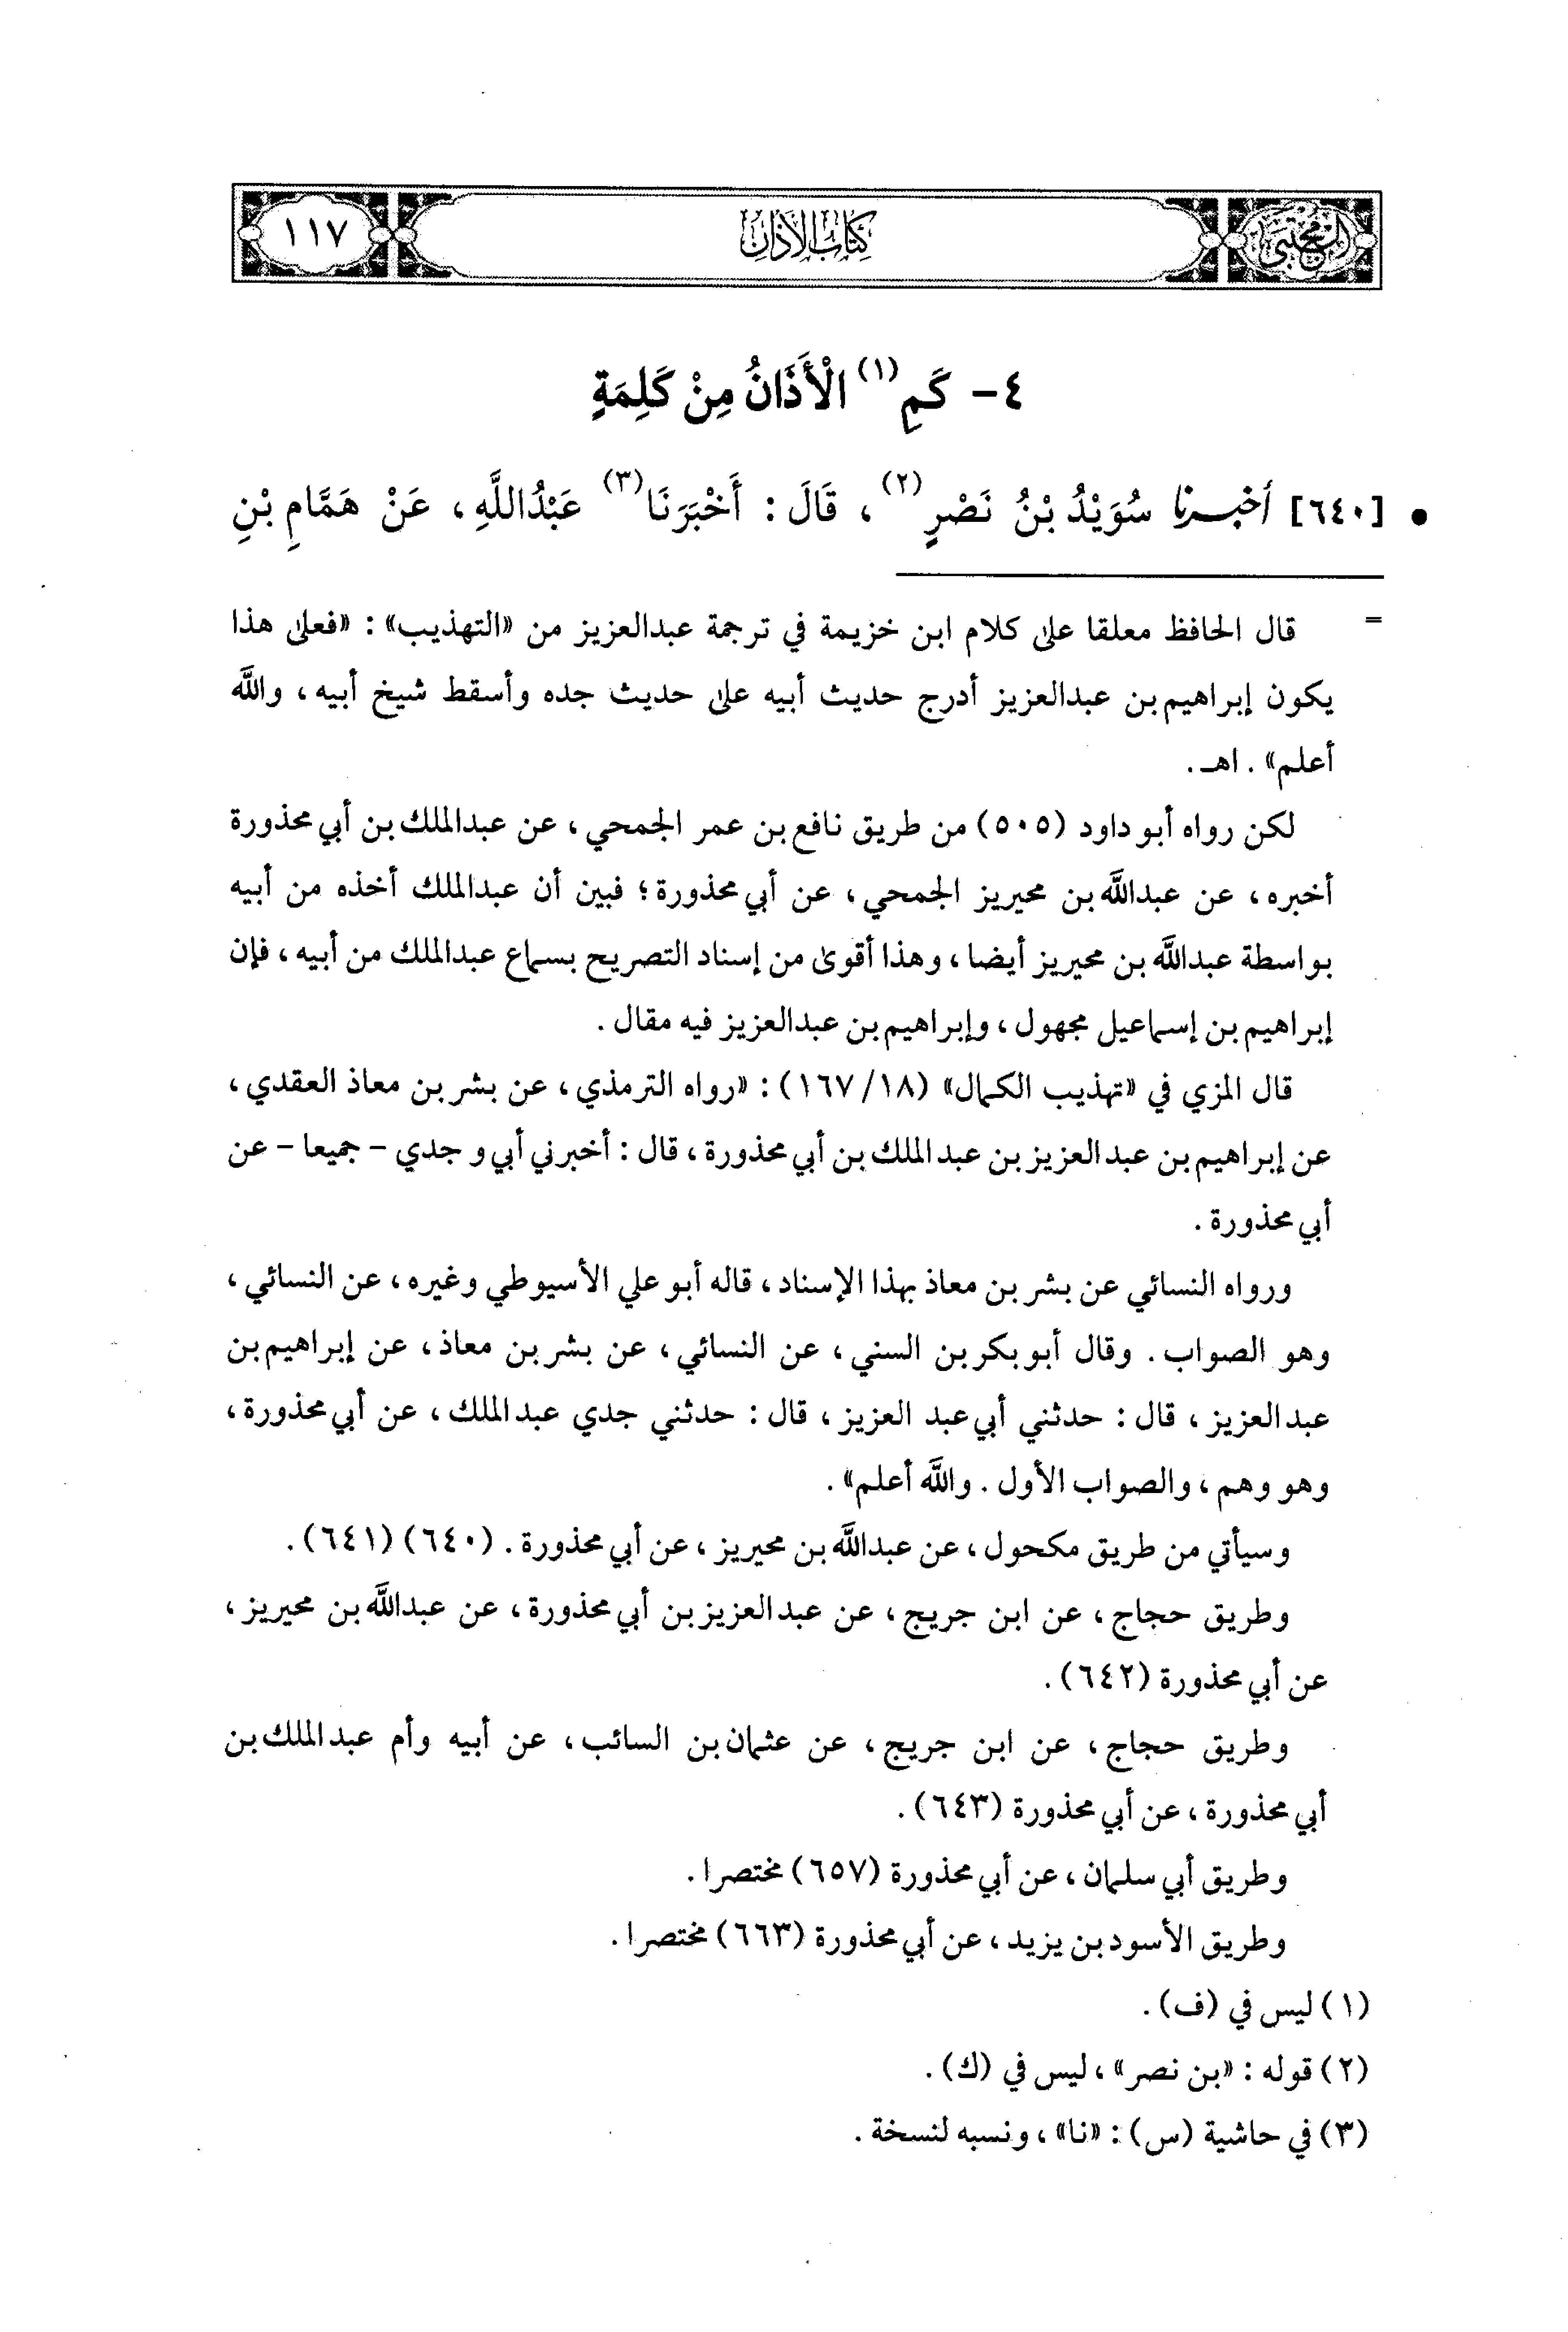 المجتبى
كتاب الأذان
١١٧
٤- كَمِ(١) الْأَذَانُ مِنْ كَلِمَةٍ
• [٦٤٠] أخبرنا سُوَيْدُ بْنُ نَصْرٍ(٢)، قَالَ: أَخْبَرَنَا(٣) عَبْدُاللَّهِ، عَنْ هَمَّامِ بْنِ
= قال الحافظ معلقا على كلام ابن خزيمة في ترجمة عبدالعزيز من «التهذيب»: «فعلى هذا
يكون إبراهيم بن عبدالعزيز أدرج حديث أبيه على حديث جده وأسقط شيخ أبيه، والله
أعلم». اهـ.
لكن رواه أبو داود (٥٠٥) من طريق نافع بن عمر الجمحي، عن عبدالملك بن أبي محذورة
أخبره، عن عبدالله بن محيريز الجمحي، عن أبي محذورة؛ فبين أن عبدالملك أخذه من أبيه
بواسطة عبدالله بن محيريز أيضا، وهذا أقوى من إسناد التصريح بسماع عبدالملك من أبيه، فإن
إبراهيم بن إسماعيل مجهول، وإبراهيم بن عبدالعزيز فيه مقال.
قال المزي في «تهذيب الكمال» (١٦٧/١٨): «رواه الترمذي، عن بشر بن معاذ العقدي،
عن إبراهيم بن عبد العزيز بن عبد الملك بن أبي محذورة، قال: أخبرني أبي و جدي - جميعا - عن
أبي محذورة.
ورواه النسائي عن بشر بن معاذ بهذا الإسناد، قاله أبو علي الأسيوطي وغيره، عن النسائي،
وهو الصواب. وقال أبو بكر بن السني، عن النسائي، عن بشر بن معاذ، عن إبراهيم بن
عبد العزيز، قال: حدثني أبي عبد العزيز، قال: حدثني جدي عبد الملك، عن أبي محذورة،
وهو وهم، والصواب الأول. والله أعلم».
وسيأتي من طريق مكحول، عن عبدالله بن محيريز، عن أبي محذورة. (٦٤٠) (٦٤١).
وطريق حجاج، عن ابن جريج، عن عبد العزيز بن أبي محذورة، عن عبدالله بن محيريز،
عن أبي محذورة (٦٤٢).
وطريق حجاج، عن ابن جريج، عن عثمان بن السائب، عن أبيه وأم عبد الملك بن
أبي محذورة، عن أبي محذورة (٦٤٣).
وطريق أبي سلمان، عن أبي محذورة (٦٥٧) مختصرا.
وطريق الأسود بن يزيد، عن أبي محذورة (٦٦٣) مختصرا.
(١) ليس في (ف).
(٢) قوله: «بن نصر»، ليس في (ك).
(٣) في حاشية (س): «نا»، ونسبه لنسخة.